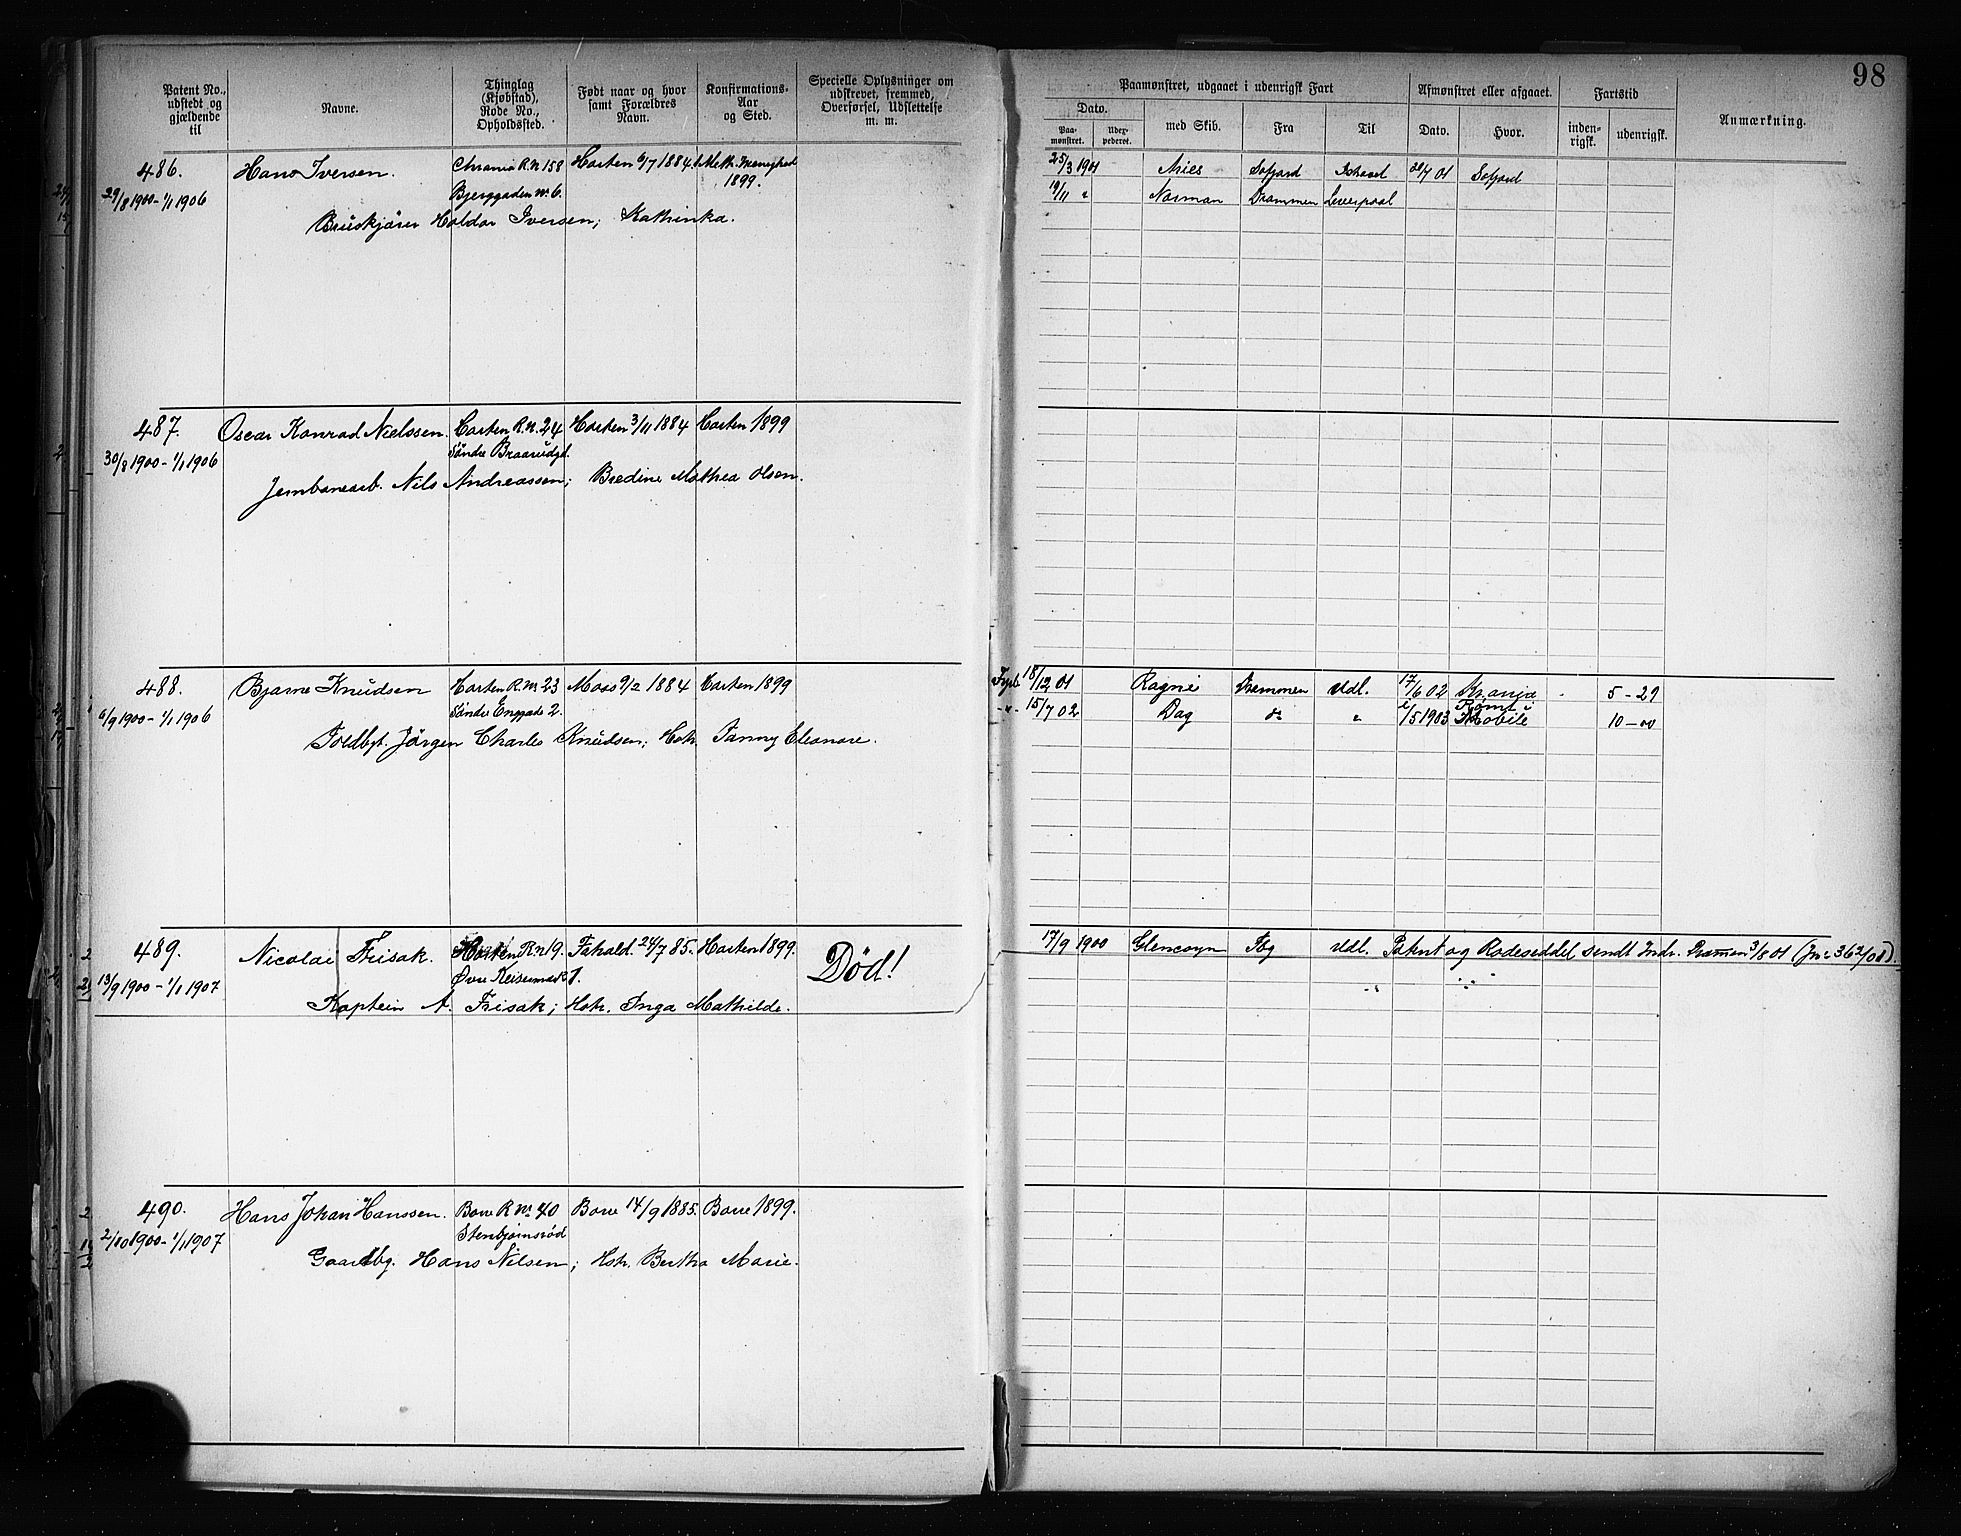 98
Patent No., udstedt og gjældende til
Navne.
Thinglag (Kjøbstad), Rode No., Opholdssted.
Født naar og hvor samt Forældres Navn.
Konfirmations-Aar og Sted.
Specielle Oplysninger om udskrevet, fremmed, Overførsel, Udslettelse m. m.
Paamønstret, udgaaet i udenrigsk Fart
Afmønstret eller afgaaet.
Fartstid
Anmærkning.
Dato.
Paa-mønstret.
med Skib.
Fra
Til
Dato.
Hvor.
inden-rigsk.
udenrigsk.
486. Hans Iversen. Chrania R.N 158 Horten 6/7 1884. Meth. Menighed 1899. 25/3 1901 Aries Sofjord 7 01 Sofjord
29/8 1900 - 1/1 1906 Bjerggaden No 6. 19/11 " Norman Drammen Liverpool
Haldor Iversen; Kathinka.
487. Oscar Konrad Nielssen. Horten R.N. 24 Horten 3/11 1884 Horten 1899
30/8 1900 - 1/1 1906 Søndre Braarudgd.
Jernbanearb. Nils Andreassen; Bredine Mathea Olsen.
488. Bjarne Knudsen Horten R.No 23 Moss 9/2 1884 Horten 1899 18/12 01 Ragni Drammen Udl. 17/6 02 Kr.ania 5 - 29
6/9 1900 - 1/1 1906 Søndre Enggade 2. - " - 15/7 02 Dag do " 1/5 1903 Rømt i Mobile 10 - 00
Toldbgt. Jörgen Charles Knudsen; Hstr. Fanny Eleonore.
489. Nicolai Frisak. Horten R.N 19. 24/7 85. Horten 1899. Død! 17/9 1900 Glencoyn Tbg Udl. Patent og Rodeseddel sendt Indr. Drammen 3/8 01 (Jn: 362/01)
13/9 1900 - 1/1 1907 Øvre Keisermark 1.
Kaptein A. Frisak; Hstr. Inga Mathilde.
490. Hans Johan Hanssen. Borre R No 40 Borre 14/9 1885. Borre 1899.
2/10 1900 - 1/1 1907 Stenbjørnsrød
Gaardbg. Hans Nilsen; Hstr. Bertha Marie.